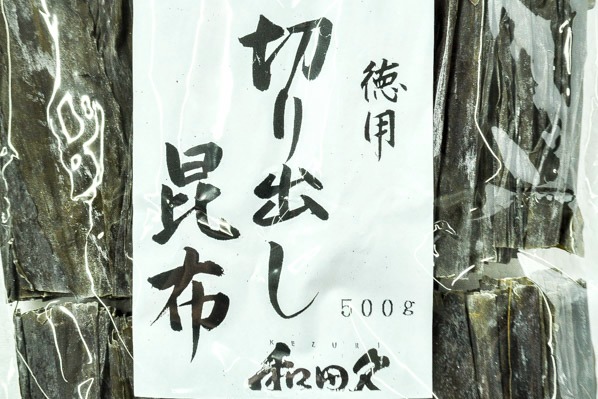 徳用
切り出し
昆布
500g
KEZURI
和田久